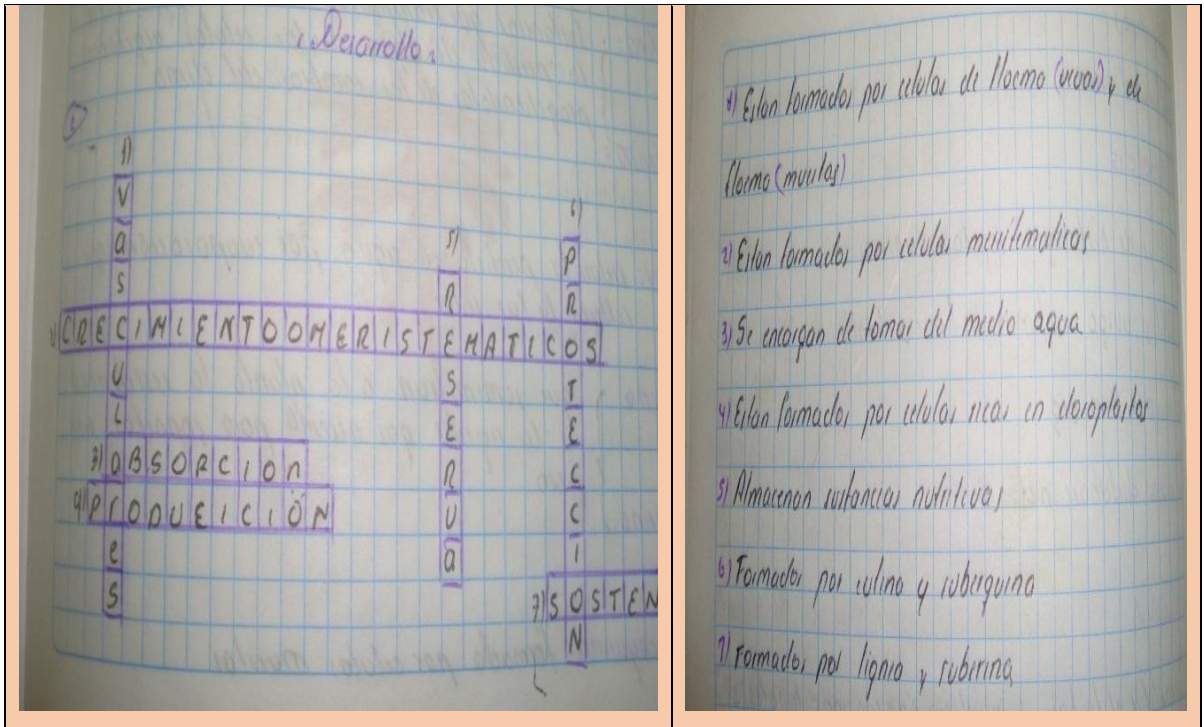 Desarrollo.
1
1)
VaSCULares
5)
RESERVa
6)
PROTECCION
CRECIMIENTOOMERISTEMATICOS
3) aBSORCIOn
4) PrODUEICIÓN
7) SOSTEN
1) Estan formados por celulas de floema (vivas) y de
floema (muertas)
2) Estan formados por celulas meristematicas
3) Se encargan de tomar del medio agua
4) Estan formados por celulas ricas en cloroplastos
5) Almacenan sustancias nutritivas
6) Formados por cutina y
7) Formados por lignio y suberina